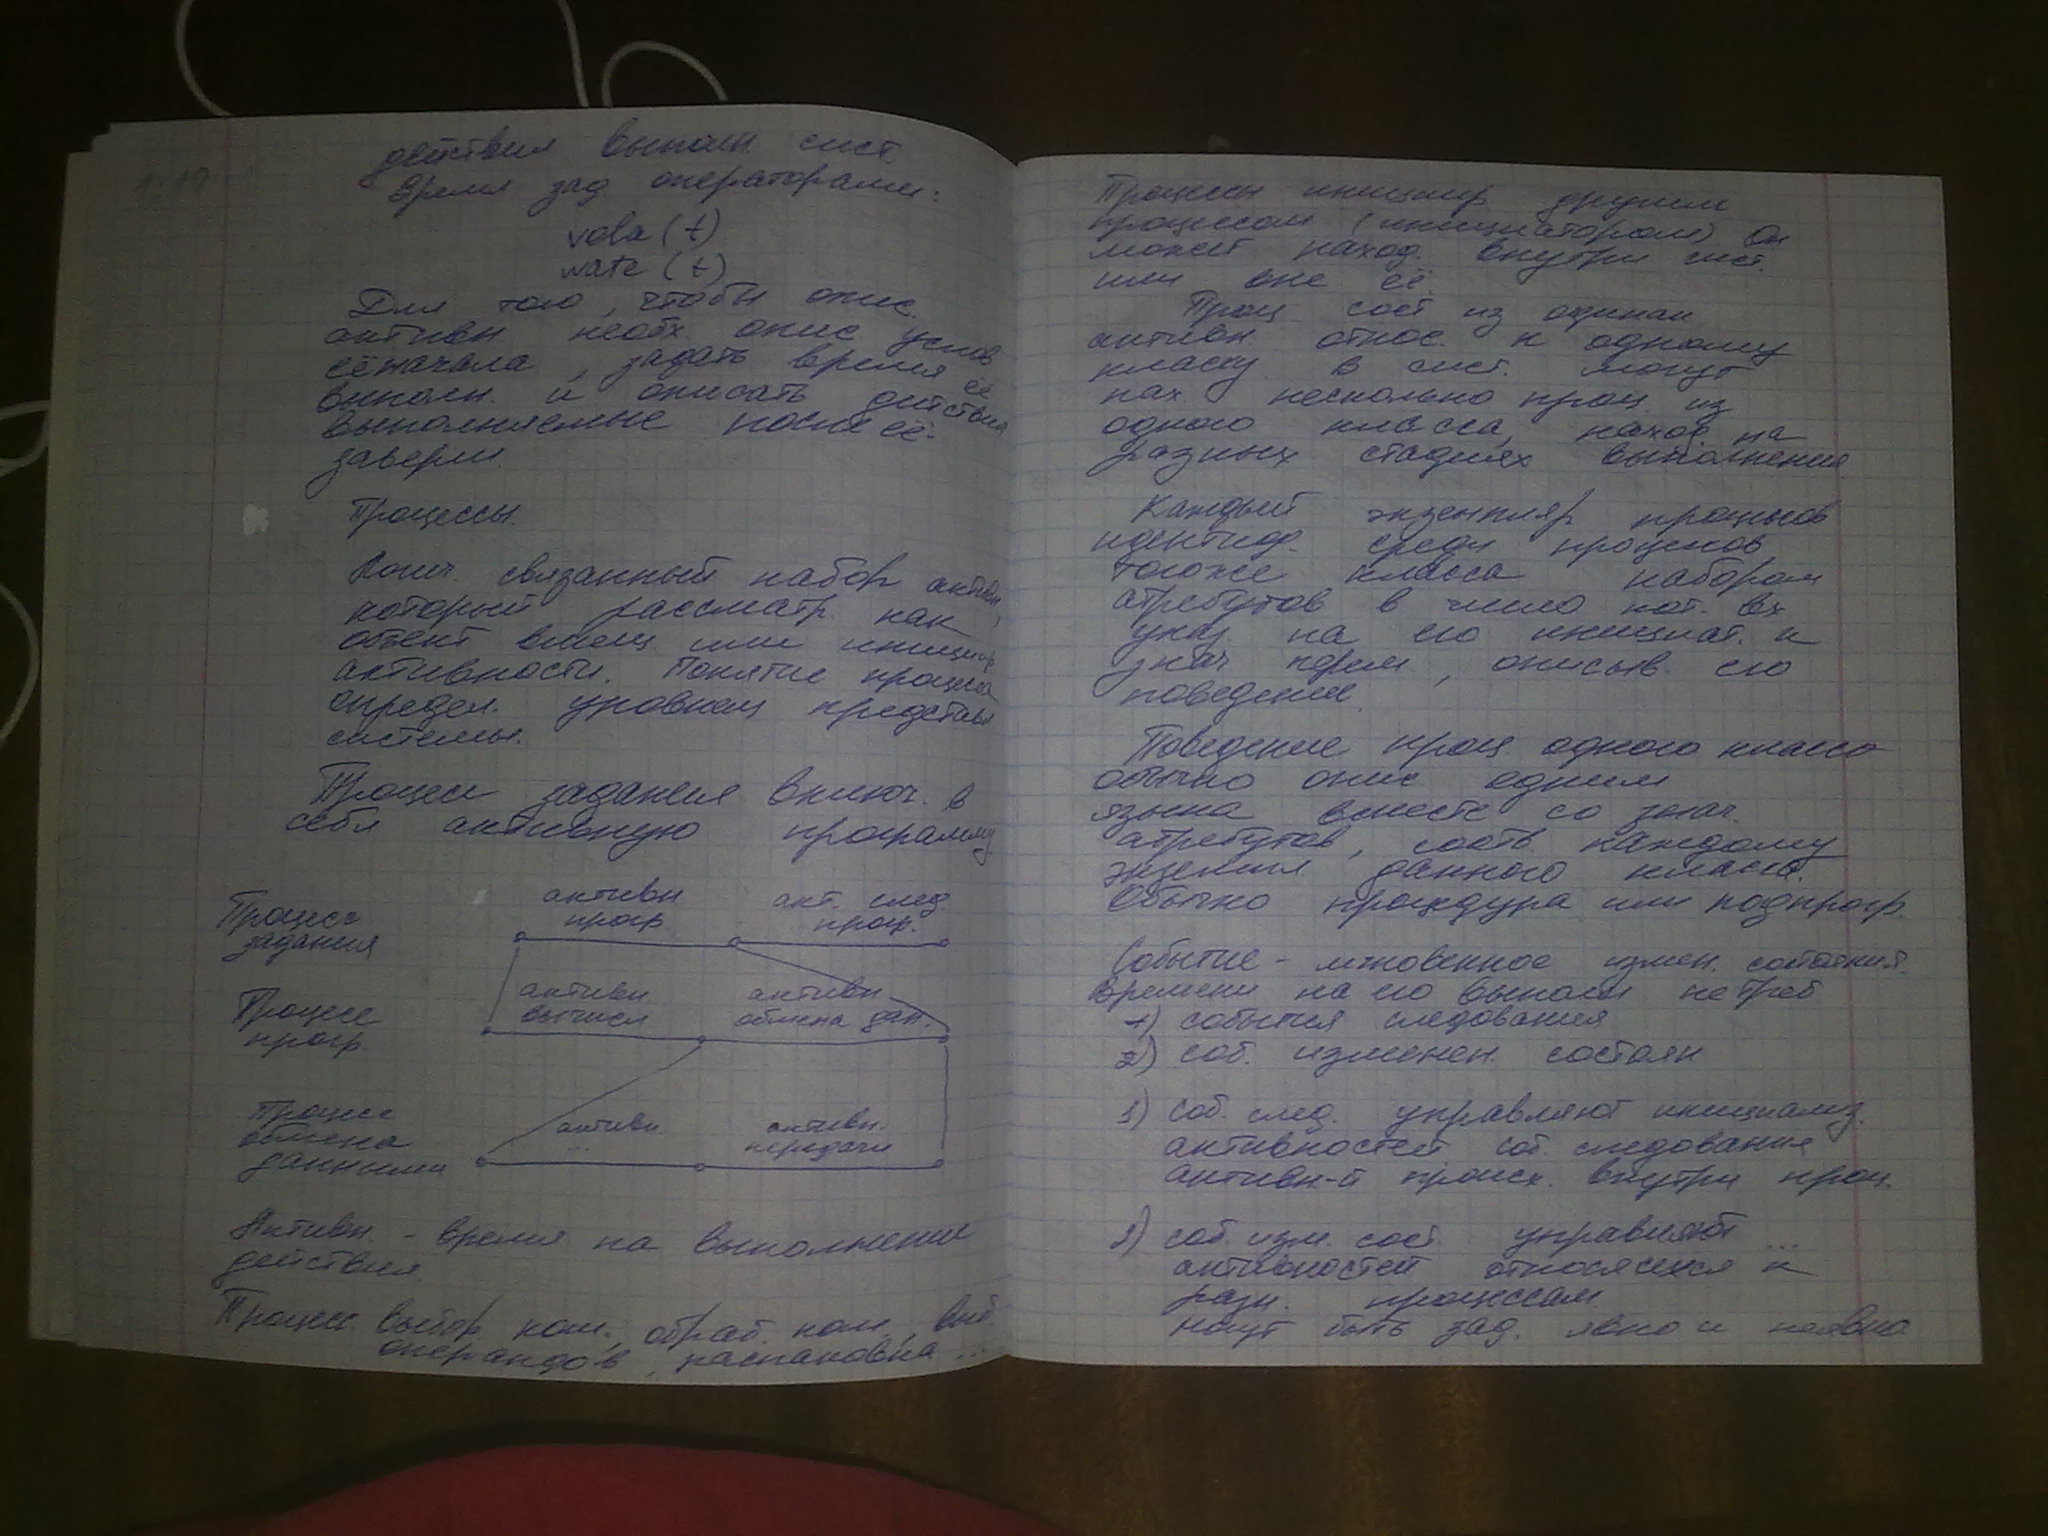 действия выполн сист.
Время зад. операторами:
vola (t)
wate (t)
Для того, чтобы опис.
активн необх опис услов
её начала, задать время её
выполн. и описать действия
выполняемые после её
заверш.
Процессы.
Логич. связанный набор активн,
который рассматр. как
объект внешн или иницир
активности. Понятие процесса
определ. уровнем представл
системы.
Процесс задания включ. в
себя активную программу
Процесс
задания
активн
прогр
акт. след.
прогр.
Процесс
прогр.
активн
вычисл
активн
обмена дан.
Процесс
обмена
данными
активн
...
активн.
передачи
Активн. - время на выполнение
действия.
Процесс. выбор ком., обраб. ком., выб.
операндов, распаковка ...
Процессы иницииир другим
процессом (инициатором) Он
может наход. внутри сист.
или вне её.
Проц. сост из одинак
активн. относ. к одному
классу в сист. могут
нах несколько проц. из
одного класса, наход. на
разных стадиях выполнения
Каждый экземпляр процессов
идентиф. среди процессов
тогоже класса набором
атребутов в число кот. вх
указ. на его инициат. и
знач парам, описыв. его
поведение.
Поведение проц одного класса
обычно опис. одним
языка вместе со знач.
атребутов, соотв. каждому
экземпл данного класса.
Обычно процедура или подпрогр.
Событие - мгновенное измен. состояния.
Времени на его выполн не треб.
1) события следования
2) соб. изменен. состоян
1) соб. след. управляют инициализ.
активностей соб. следования
активн-й происх. внутри проц.
2) соб. изм. сост. управляют ...
активностей относящихся к
разн. процессам.
могут быть зад. явно и неявно